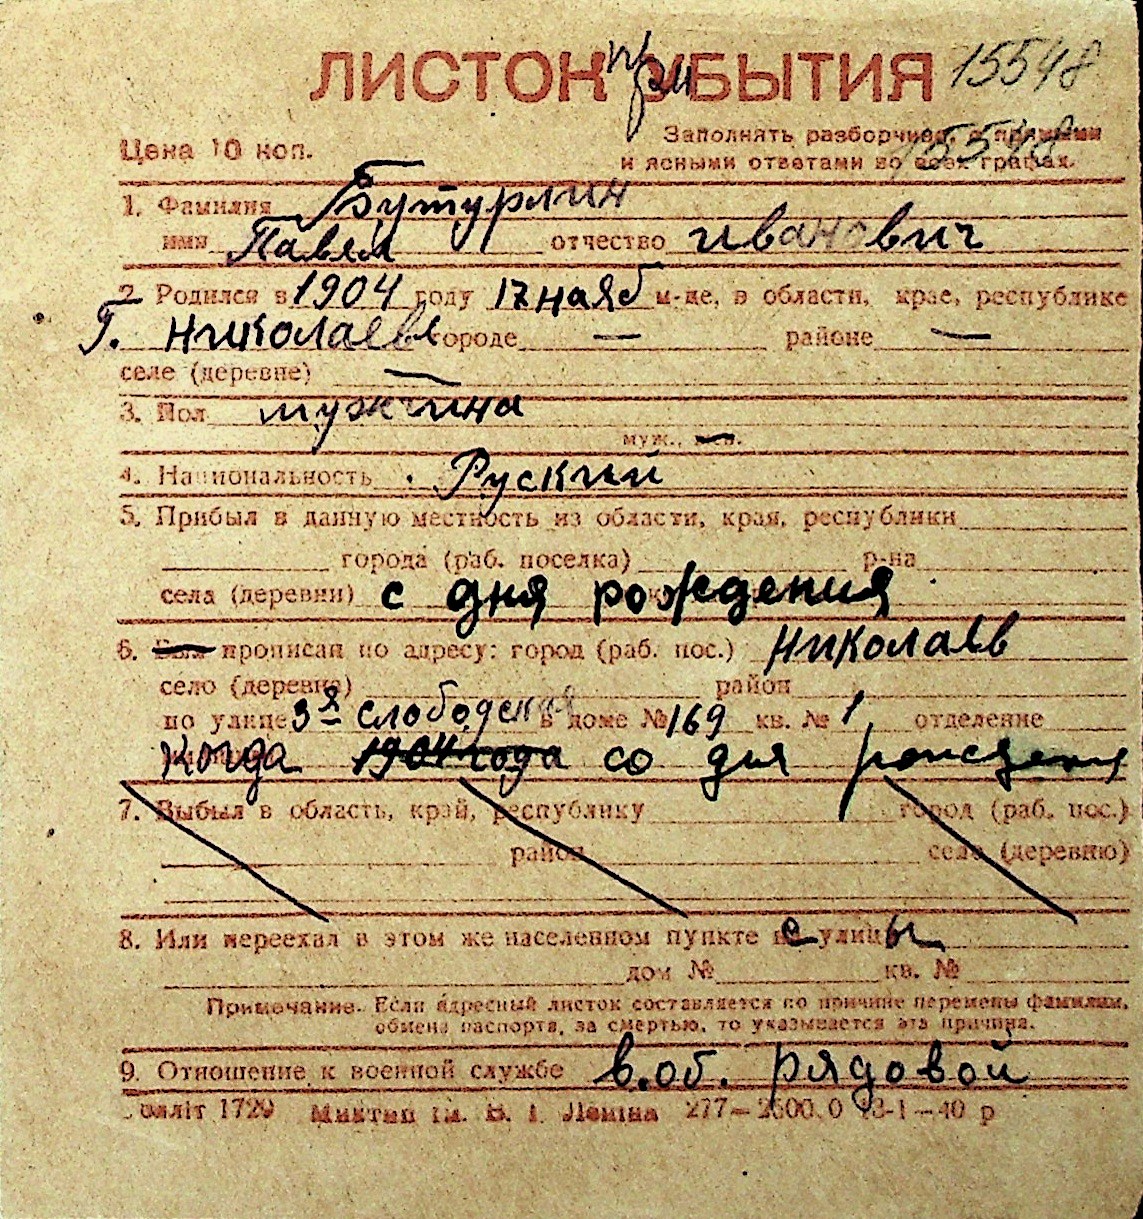 ЛИСТОК УБЫТИЯ 15548
при
Цена 10 коп.
Заполнять разборчиво, с прямыми
и ясными ответами во всех графах.
15548
1. Фамилия Бутурлин
имя Павел отчество иванович
2. Родился в 1904 году 17 наяб м-це, в области, крае, республике
Г. Николаеве городе — районе —
селе (деревне) —
3. Пол мужчина
муж., жен.
4. Национальность Рускии
5. Прибыл в данную местность из области, края, республики
города (раб. поселка) р-на
села (деревни) с дня рождения
6. Был прописан по адресу: город (раб. пос.) Николаев
село (деревня) район
по улице 3я слободская в доме № 169 кв. № 1 отделение
когда 1904 года со дня рождения
7. Выбыл в область, край, республику город (раб. пос.)
район село (деревню)
8. Или переехал в этом же населенном пункте с улицы
дом № кв. №
Примечание. Если адресный листок составляется по причине перемены фамилии,
обмена паспорта, за смертью, то указывается эта причина.
9. Отношение к военной службе в.об. рядовой
1729 ім. В. І. Леніна 277— —40 р